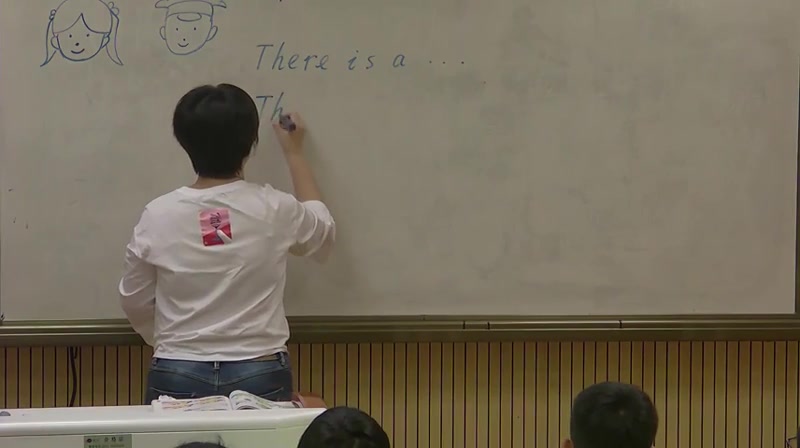 There is a ...
Th